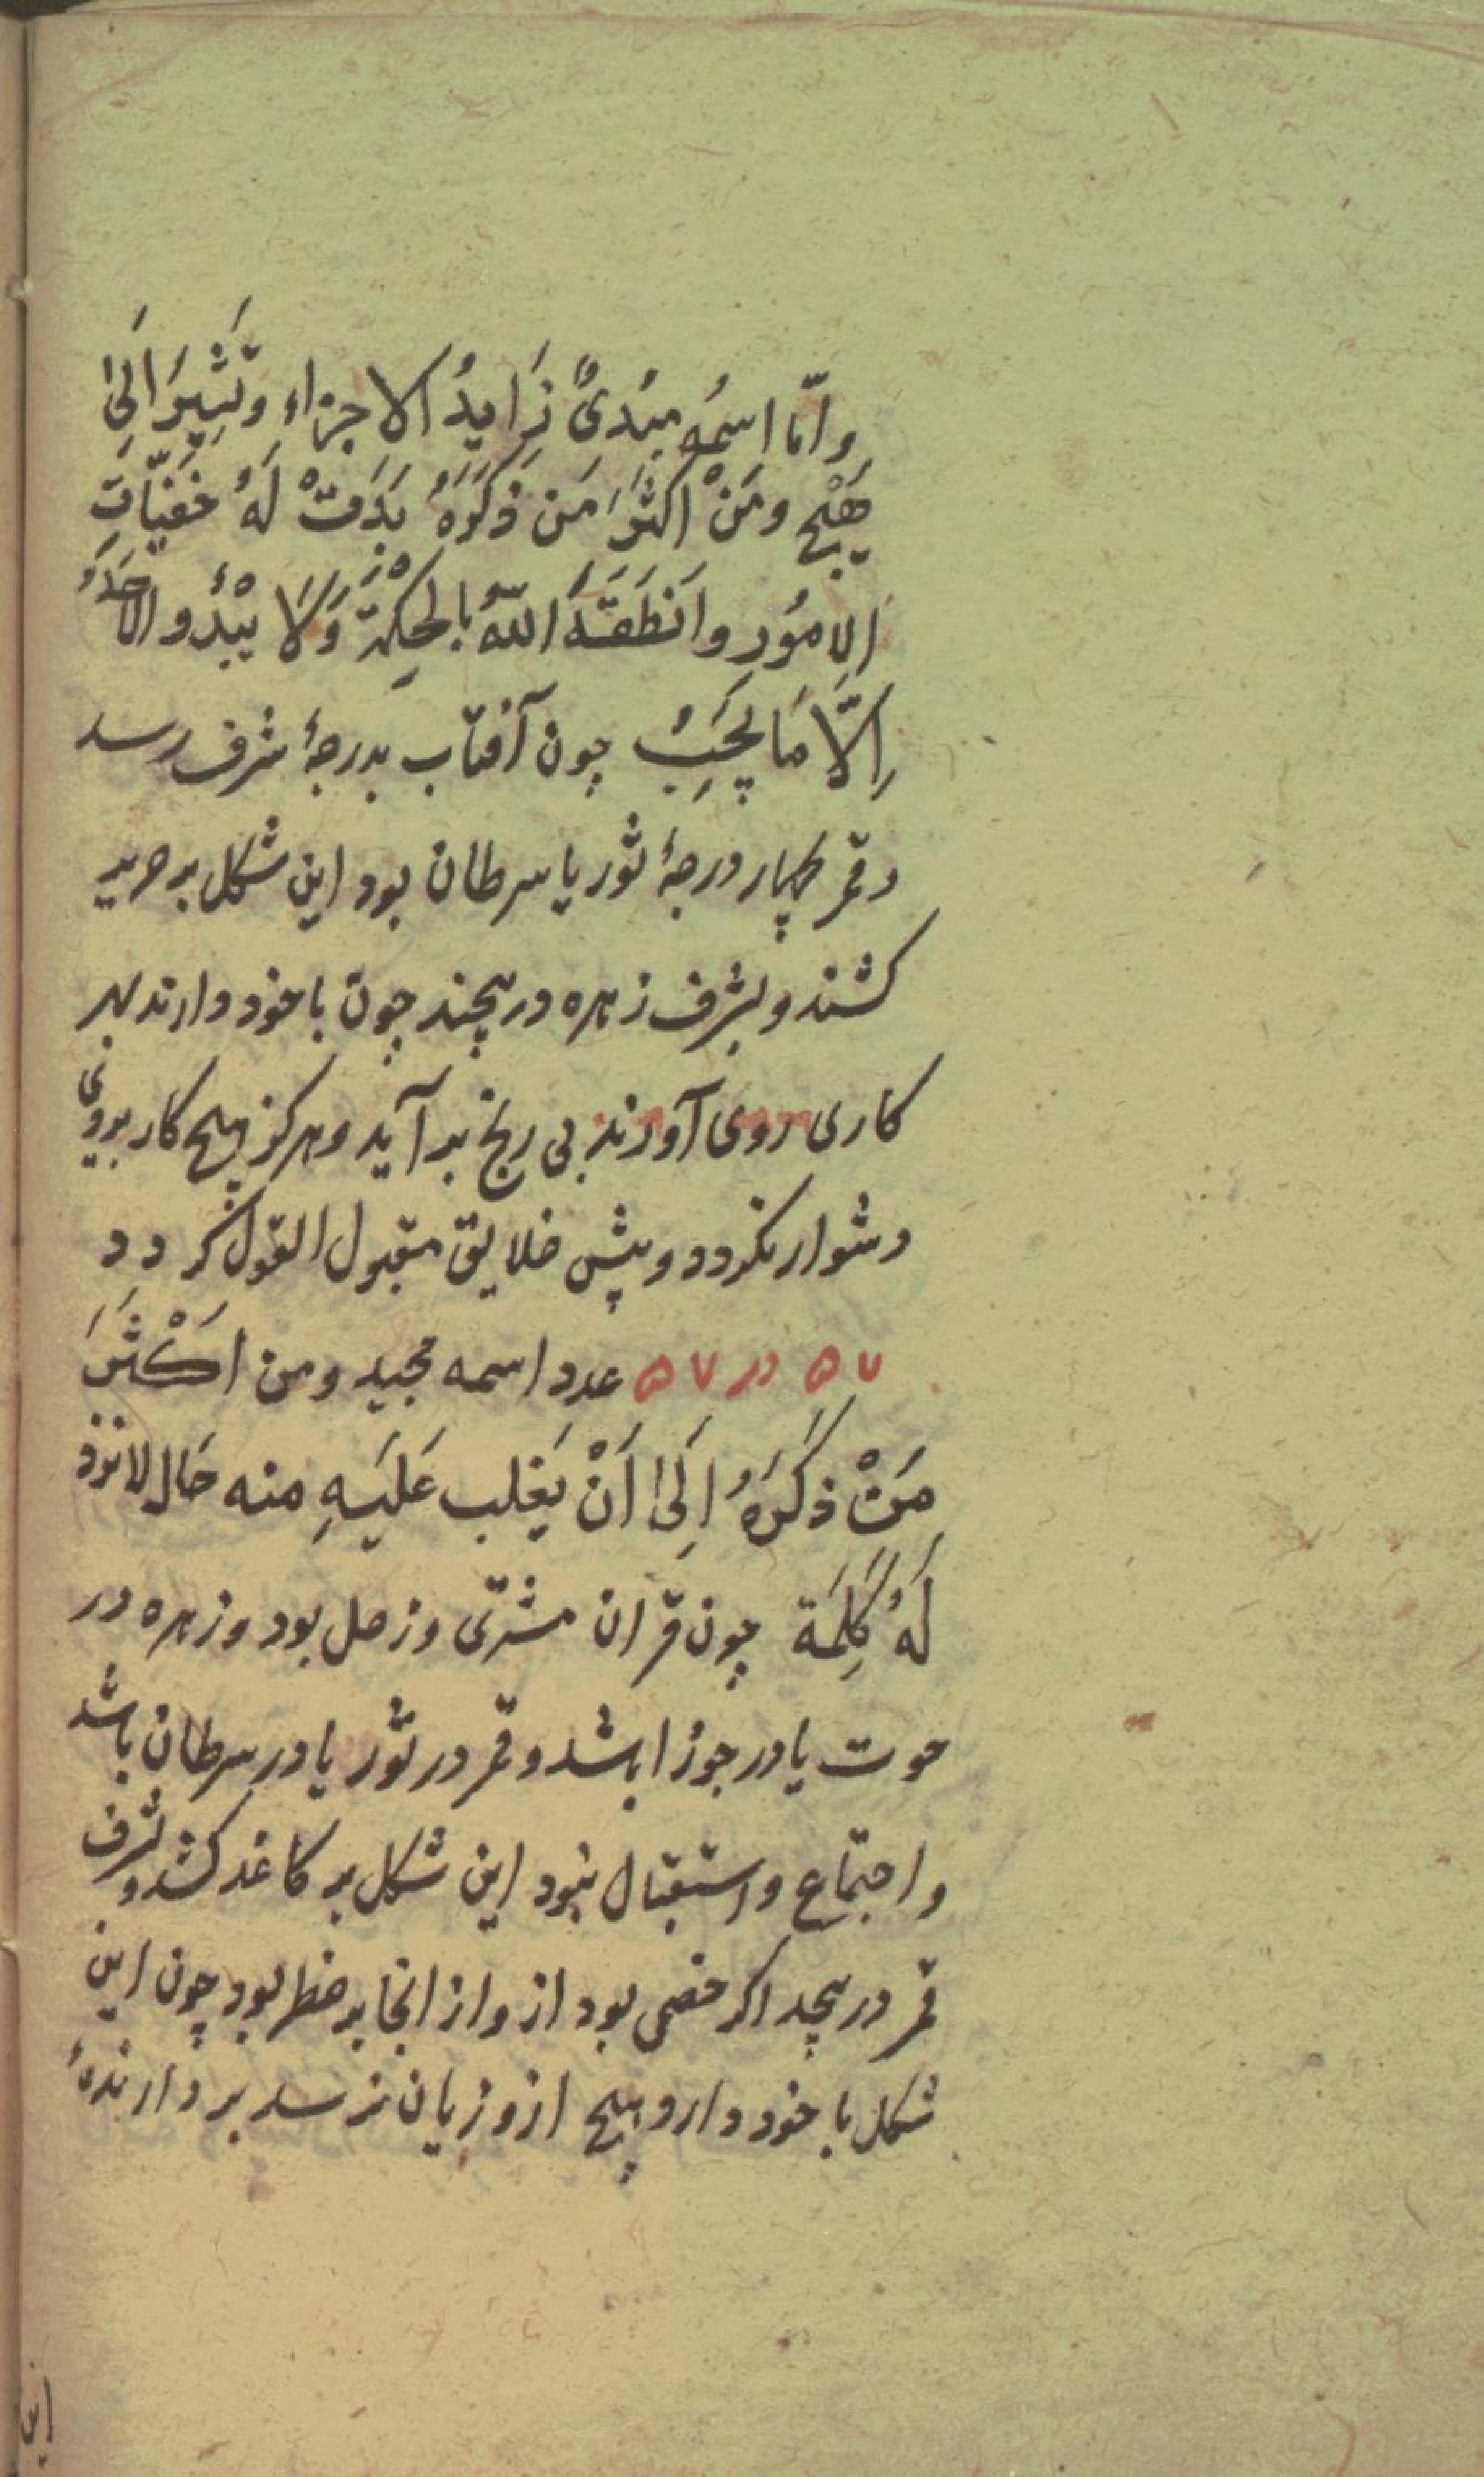 و امّا اسمُه مبُدیٌ زَایِدُ الاجزاءِ وتَّشِیرَ اَلیٰ
هیْج ومَنْ اکثَرَ مَن ذکَرَهُ بَدَتْ لَهُ خفیّاتِ
الامُورِ وانَطَقَهُ اللّهُ بالحِکْمَة وَلَا یبْدُو الاَحَدَ
اِلّا مَا یُحَبُِ چون آفتاب بدرجهٔ شرف رسد
وقمر بچهار درجهٔ ثور یا سرطان بود این شکل بر حریر
کشند و بشرف زهره در پیچند چون با خود دارند بهر
کاری روی آورند بی رنج برآید و هرکز هیچ کار بروی
دشوار نکردد و پیش خلایق مقبول القول کردد
۵۷ در ۵۷ عدد اسمه مجید ومن اکْثَرَ
مَنْ ذکَرَهُ اِلَیٰ اَنْ یَغلب عَلَیهِ منه حَال لا تُرَد
لَهُ کَلِمَة چون قران مشتری و زحل بود و زهره در
حوت یا در جوزا باشد و قمر در ثور یا در سرطان باشد
و اجتماع و استقبال نبود این شکل بر کاغد کشد و بشرف
قمر در پیچد اکر خصمی بود ازو از انجا بر خطر بود چون این
شکل با خود دارد هیچ ازو زیان نرسد بر دارندهٔ
این